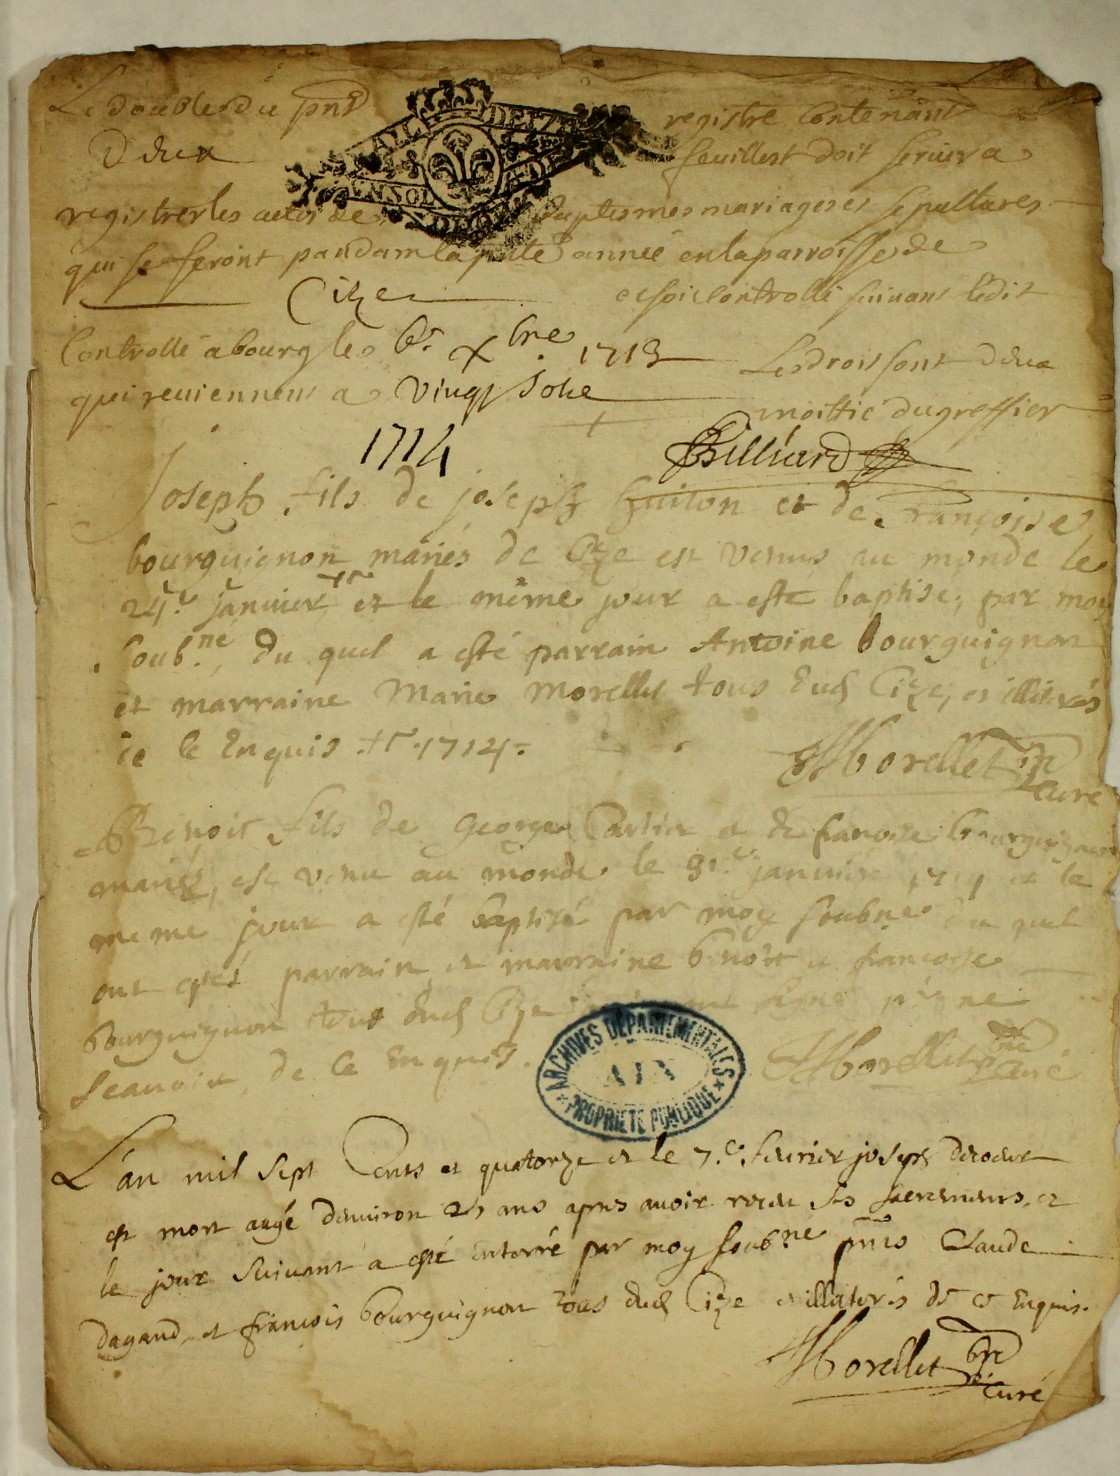 Le double du pnt registre Contenant
Deux feuillest doit servir a
registrer les actes de baptesmes mariages et sepultures
qui se feront pandant la pnte année en la parroisse de
Cize et soit controllé suivant l'edit
Controllé a bourg le xbre 1713 Les droits sont deux
qui reviennent a vingt sols moittié du greffier
1714 Billiard
Joseph fils de joseph guiton et de françoise
bourguignon mariés de Cize est venus au monde le
24e janvier et le même jour a esté baptisé, par moy
soub.né, du quel a esté parrain Antoine bourguignon
et marraine Marie Morellet tous dud Cize, et illiterés
de ce Enquis 1714.
Morellet
curé
Benoit fils de George et de francoise bourguignon
mariés, est venu au monde le 31e janvier 1714 et le
meme jour a esté baptisé par moy soubne du quel
ont estés parrain et marraine benoit et francoise
bourguignon tout dud Cize signé p ne
scavoir, de ce Enquis.
Morellet pbre
curé
ARCHIVES DÉPARTEMENTALES
AIN
PROPRIÉTÉ PUBLIQUE
L'an mil sept Cents et quatorze et le 7.e fevrier joseph
est mort augé d'environ 25 ans apres avoir receu ses sacremens, et
le jour suivant a esté Enterré par moy soub.ne pnts Claude
dagand, et françois bourguignon tous dud Cize et illiterés de ce Enquis.
Morellet pbre
curé